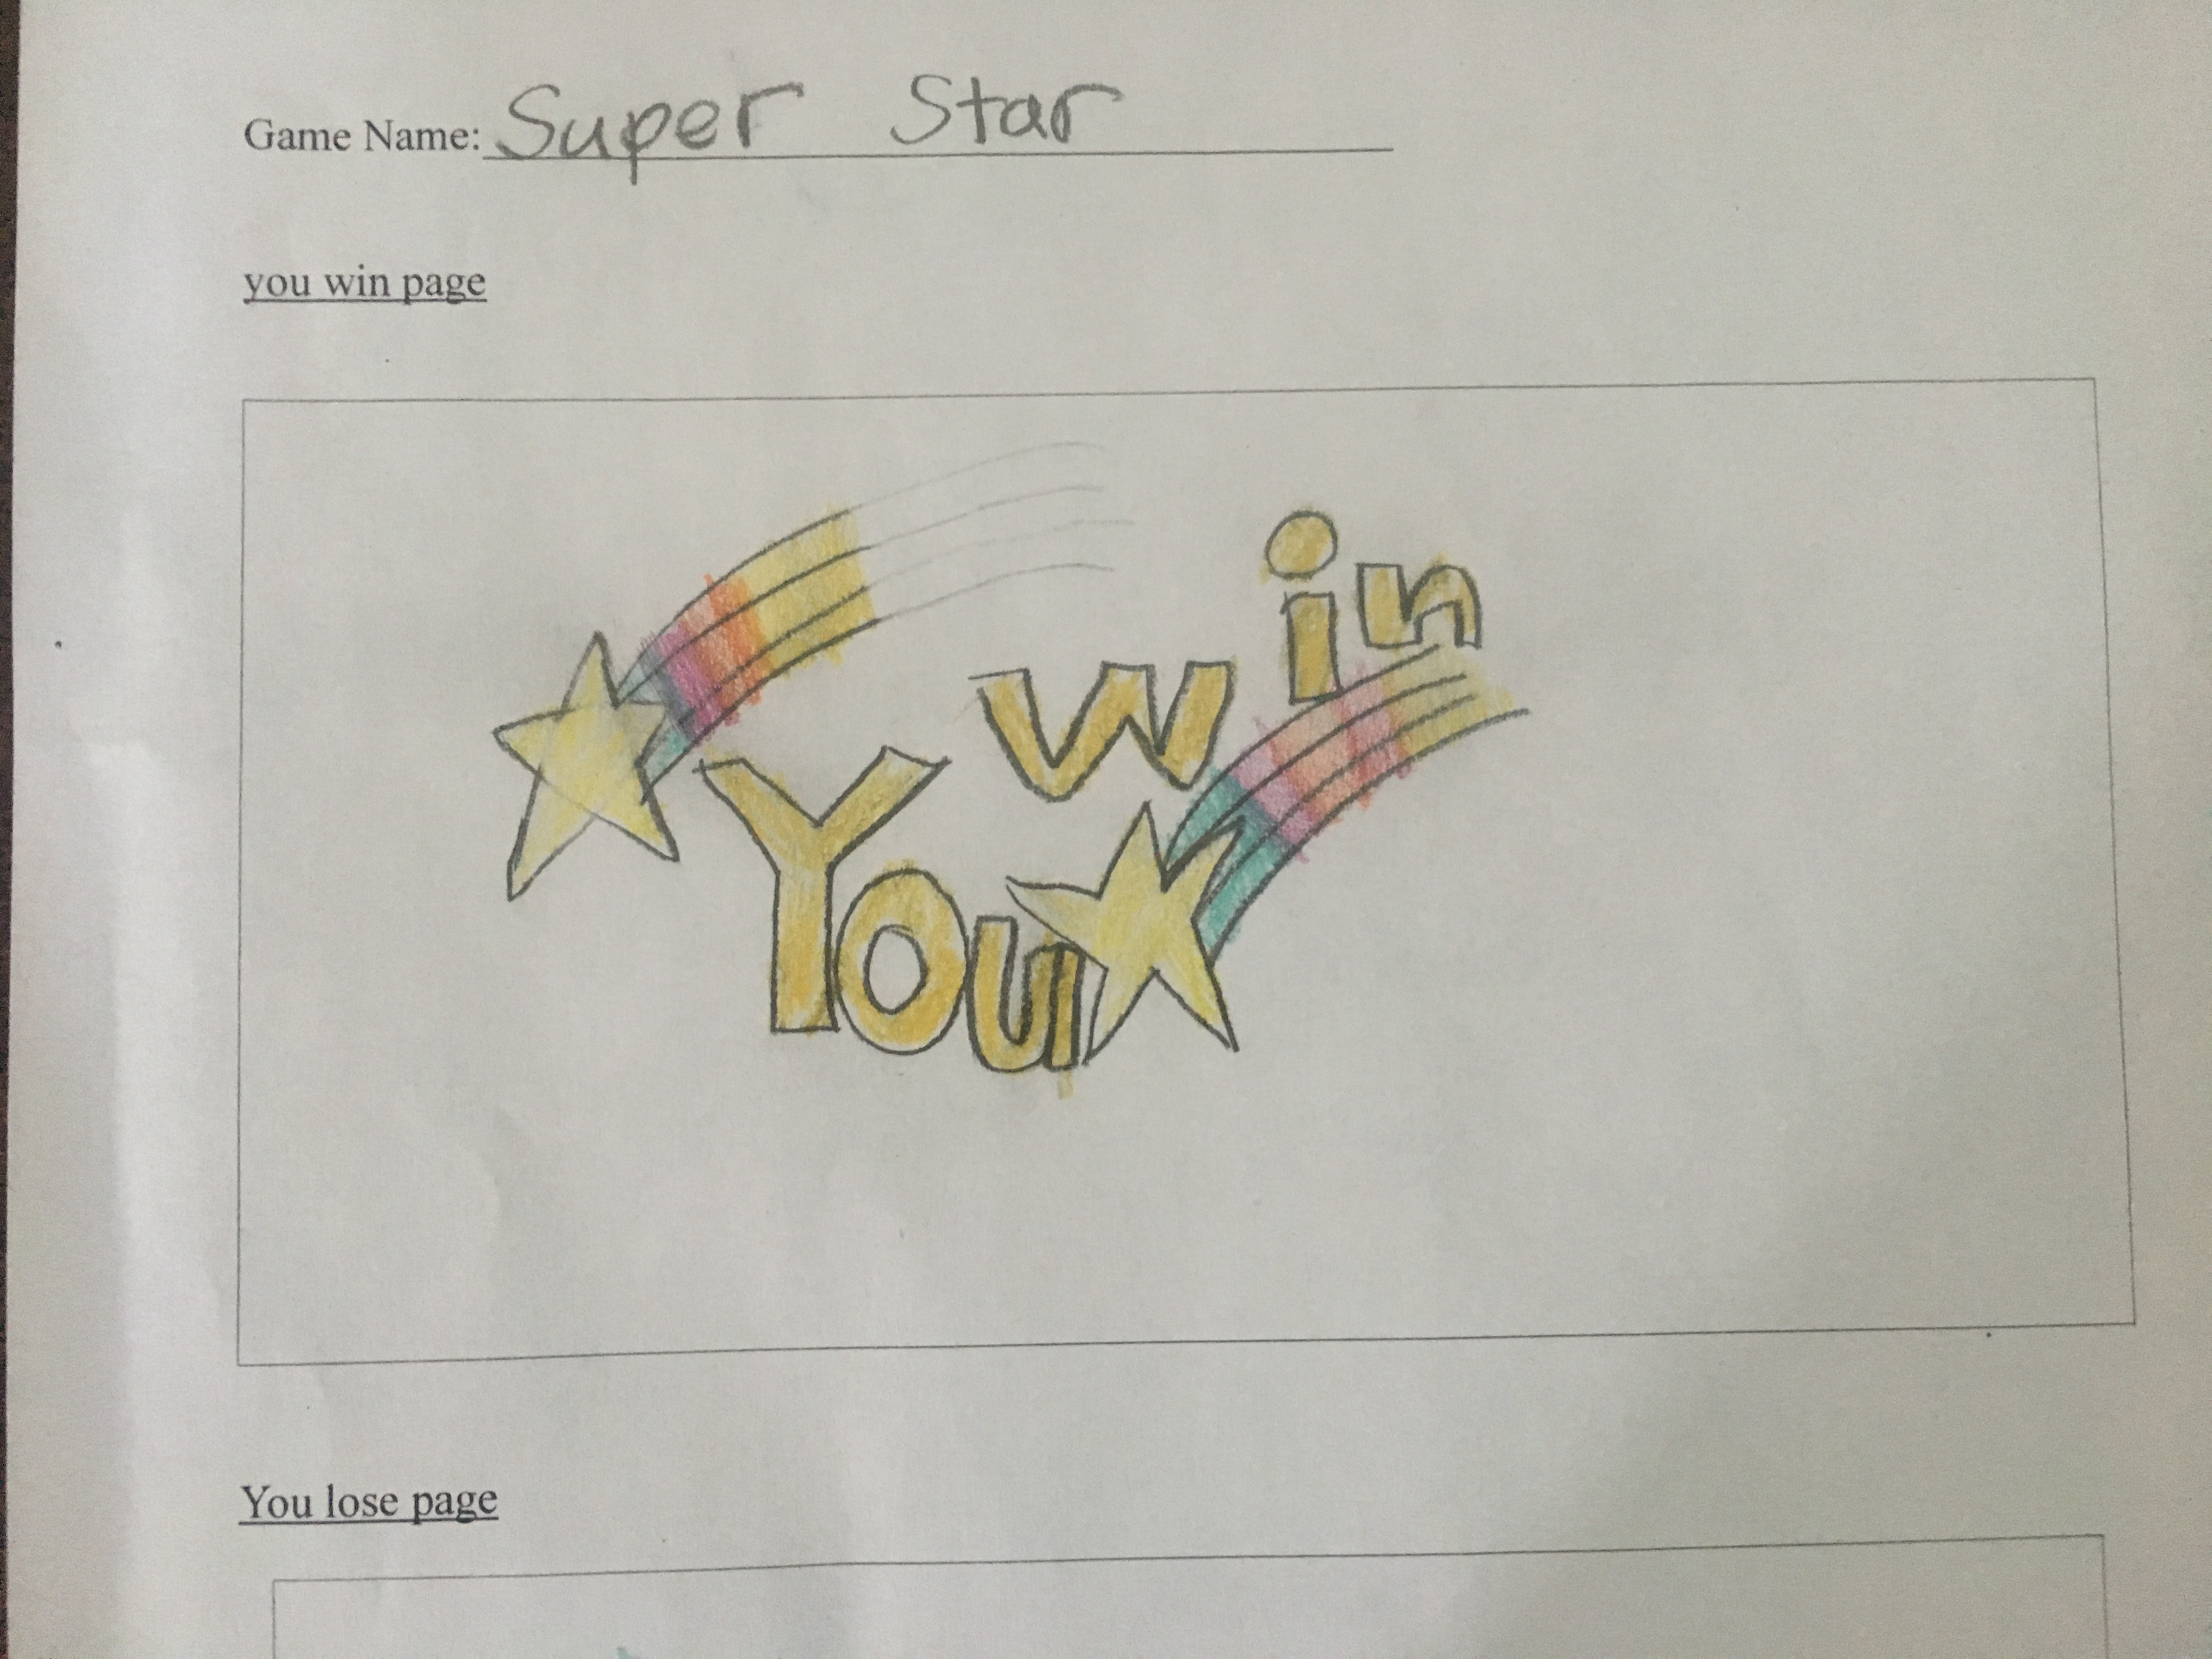 Game Name: Super Star
you win page
You win
You lose page